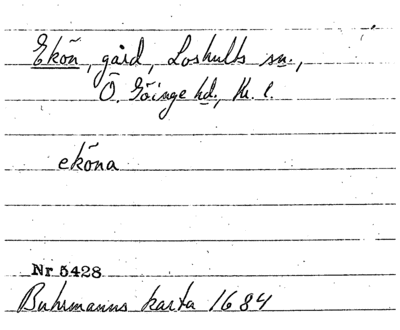 Ekön, gård, Loshults sn.,
Ö. Göinge hd., Kr. l.
eköna
Nr 5428
Buhrmanns karta 1684